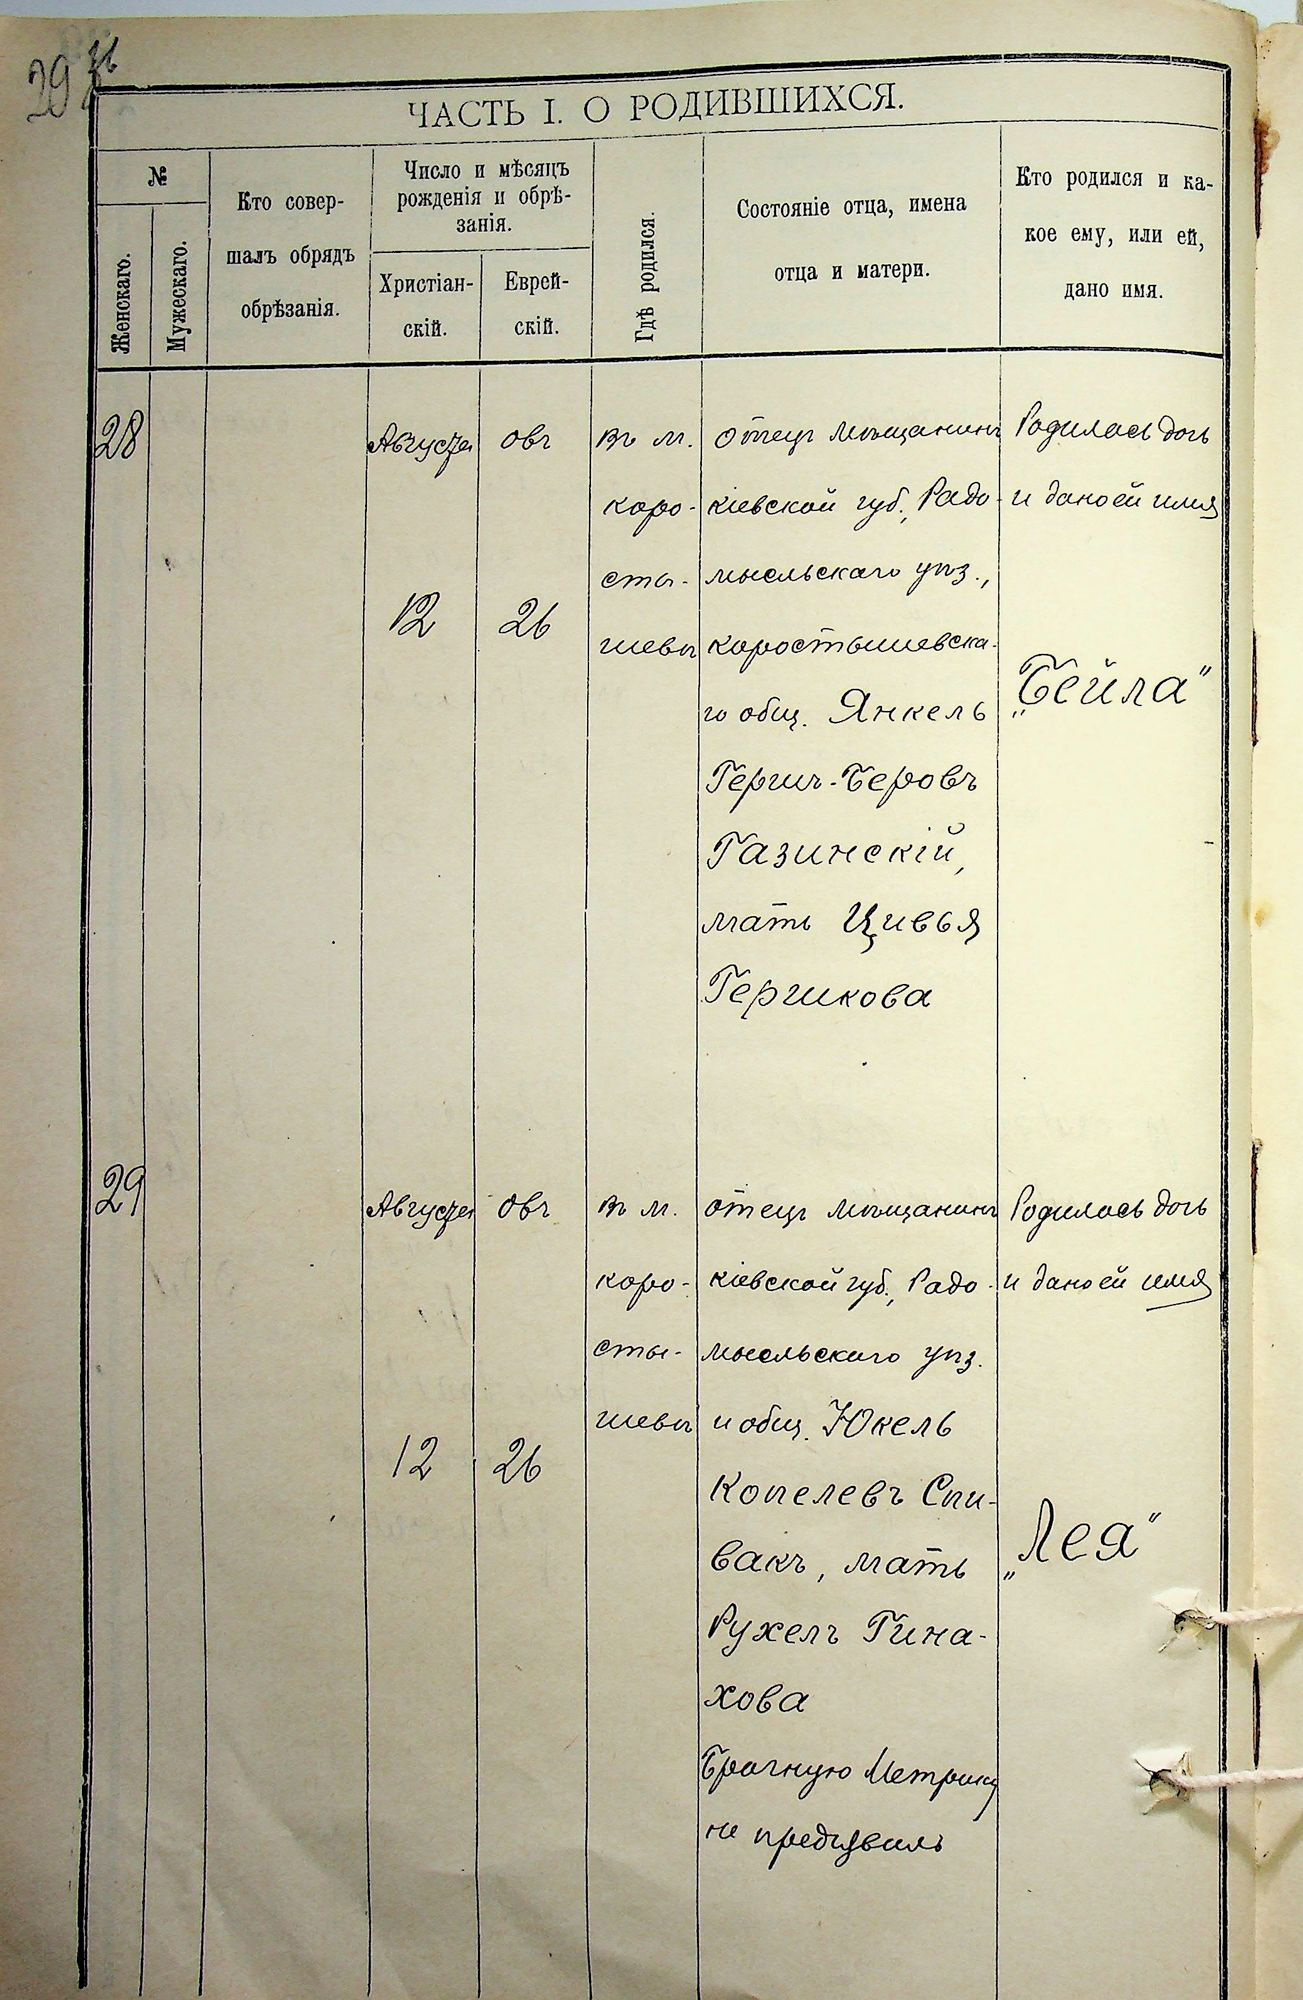 29
ЧАСТЬ I. О РОДИВШИХСЯ.
№
Женскаго.
Мужескаго.
Кто совер-
шалъ обрядъ
обрѣзанія.
Число и мѣсяцъ
рожденія и обрѣ-
занія.
Христіан-
скій.
Еврей-
скій.
Гдѣ родился.
Состояніе отца, имена
отца и матери.
Кто родился и ка-
кое ему, или ей,
дано имя.
28
Августа
12
Овъ
26
Въ м.
Коро-
сты-
шевѣ
Отецъ мѣщанинъ
Кіевской губ., Радо-
мысльскаго уѣз.,
Коростышевска-
го общ. Янкель
Герш-Беровъ
Газинскій,
мать Цивья
Гершкова
Родилась дочь
и дано ей имя
„Бейла"
29
Августа
12
Овъ
26
Въ м.
Коро-
сты-
шевѣ
Отецъ мѣщанинъ
Кіевской губ., Радо-
мысльскаго уѣз.
и общ. Юкель
Копелевъ Спи-
вакъ, мать
Рухель Пина-
хова
Брачную Метрику
не предъявилъ
Родилась дочь
и дано ей имя
„Лея"